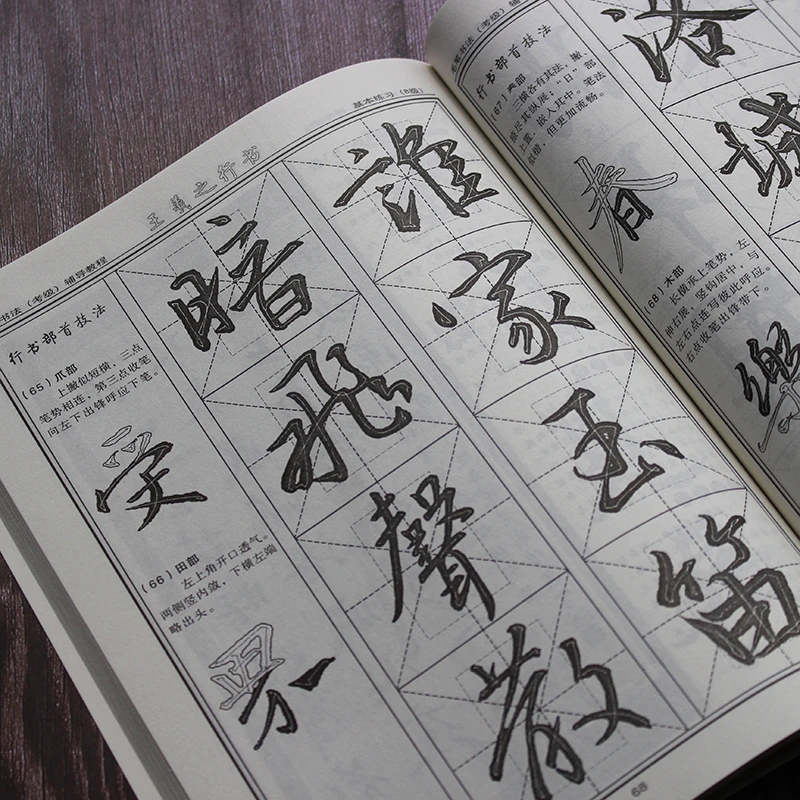 书法（考级）辅导教程
王羲之行书
行书部首技法
（65）爪部
上撇似短横，三点
笔势相连，第三点收笔
向左下出锋呼应下笔。
受
（66）田部
左上角开口透气。
两侧竖内敛，下横左端
略出头。
誰家玉笛
暗飛聲散
68
书法（考级）辅
行书部首技法
三横各有其法，撇
捺尽其纵展；“日”部
上置，嵌入其中。笔法
似楷，但更加流畅。
春
（68）木部
长横承上笔势，左
伸右展，竖钩居中，与
左右点连写彼此呼应。
右点收笔出锋带下。
樂
洛城